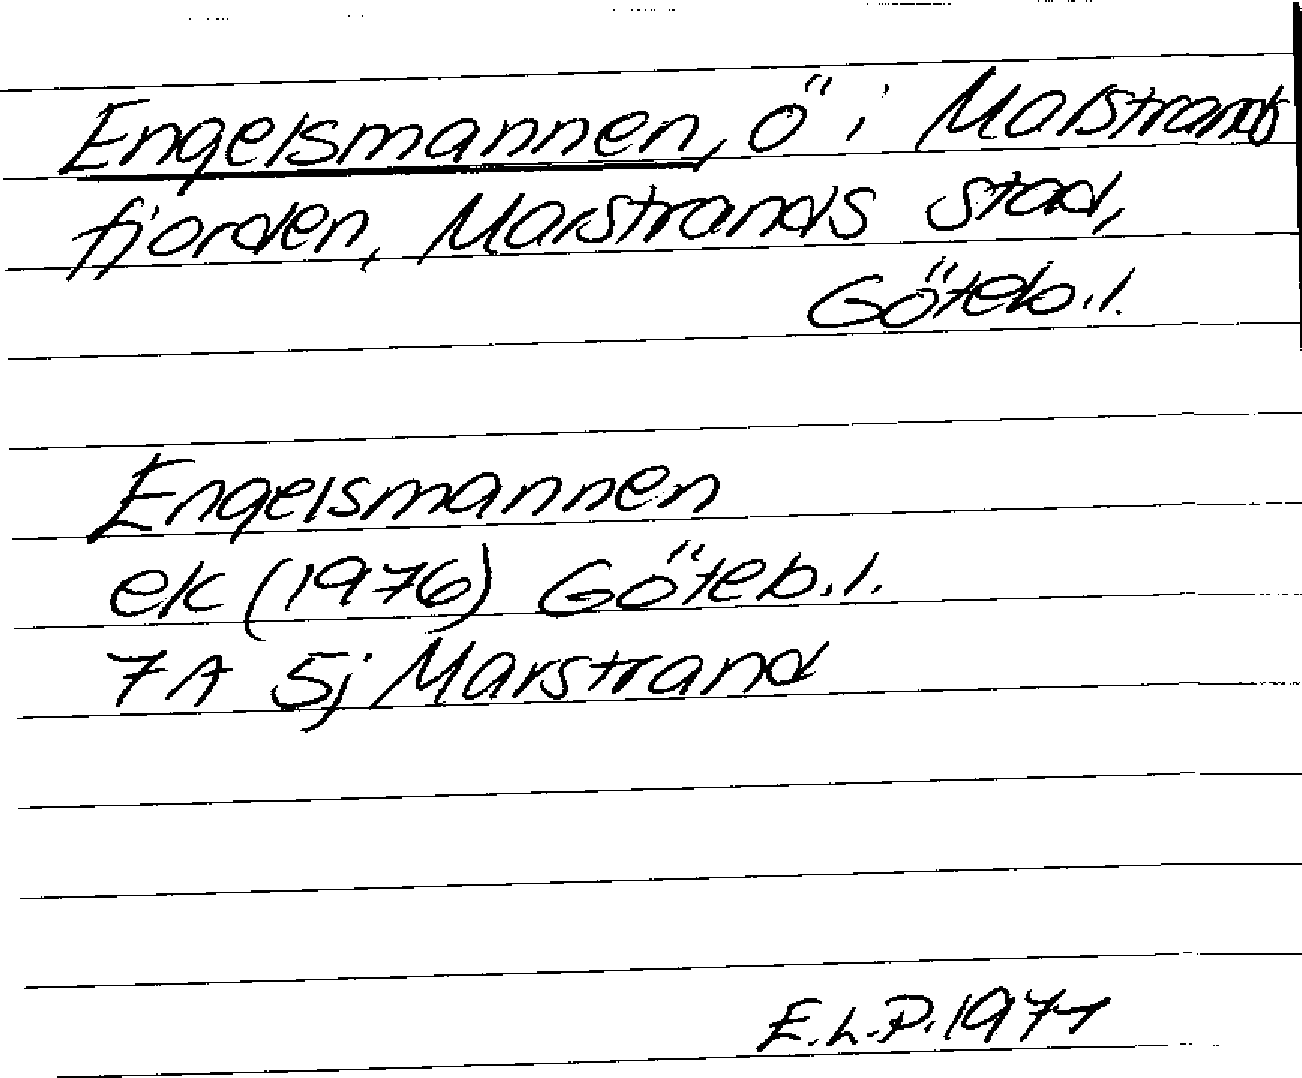 Engelsmannen, ö i Marstrands
fjorden, Marstrands stad,
Göteb.l.
Engelsmannen
ek (1976) Göteb.l.
7A 5j Marstrand
E.L.P. 1977